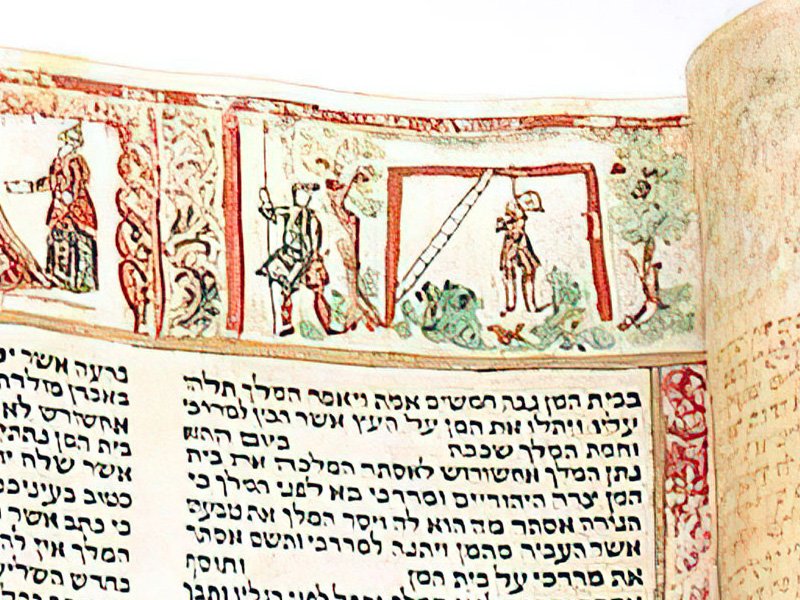 בבית המן גבה חמשים אמה ויאמר המלך תלהו
עליו ויתלו את המן על העץ אשר הכין למרדכי
וחמת המלך שככה ביום ההוא
נתן המלך אחשורוש לאסתר המלכה את בית
המן צרר היהודיים ומרדכי בא לפני המלך כי
הגידה אסתר מה הוא לה ויסר המלך את טבעתו
אשר העביר מהמן ויתנה למרדכי ותשם אסתר
את מרדכי על בית המן ותוסף
לפני רגליו ותבך
ברעה אשר
באבדן מולדתי
אחשורש לא
בית המן נתתי
אשר שלח
כתוב בעיניכם
כי כתב אשר
המלך אין
בחדש השליש